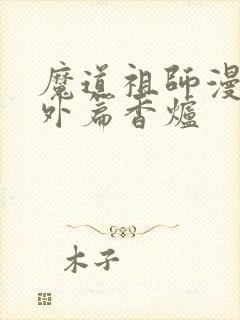 魔道祖師漫
外篇香爐
木子